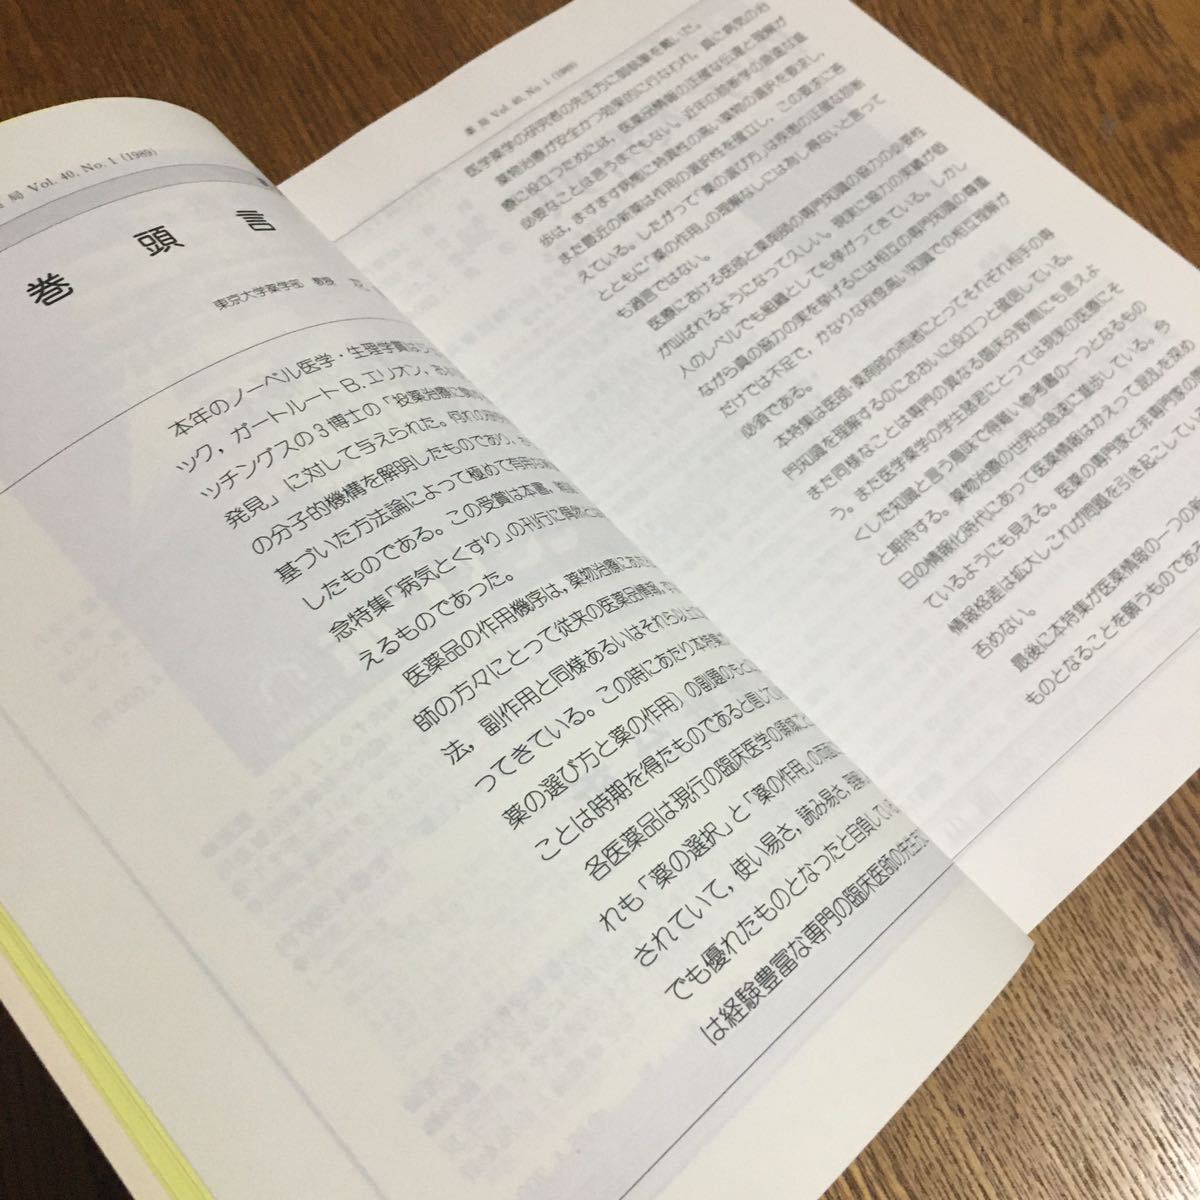 局 Vol. 40, No. 1 (1989)
巻頭言
東京大学薬学部 教授
本年のノーベル医学・生理学賞は
ック，ガートルート B. エリオン，
ッチングスの3博士の「投薬治療に
発見」に対して与えられた。何れの
の分子的機構を解明したものであり，
基づいた方法論によって極めて有用な
したものである。この受賞は本書，
念特集「病気とくすり」の刊行に
えるものであった。
医薬品の作用機序は，薬物治療にお
師の方々にとって従来の医薬品情報，
法，副作用と同様あるいはそれら以上
ってきている。この時にあたり本特集
薬の選び方と薬の作用〕の副題のもと
ことは時期を得たものであると信じてい
各医薬品は現行の臨床医学の領域
れも「薬の選択」と「薬の作用」の両面
されていて，使い易さ，読み易さ，
でも優れたものとなったと自負してい
は経験豊富な専門の臨床医師の先生方
薬局 Vol. 40, No. 1 (1989)
医学薬学の研究者の先生方に御執筆を戴いた。
薬物治療が安全かつ効果的に行なわれ，真に病気の治
療に役立つためには，医薬品情報の正確な伝達と理解が
必要なことは言うまでもない。近年の診断学の急速な進
歩は，ますます病態に特異性の高い薬物の選択を要求し，
また最近の新薬は作用の選択性を確立し，この要求に答
えている。したがって「薬の選び方」は疾患の正確な診断
とともに「薬の作用」の理解なしには為し得ないと言って
も過言ではない。
医療における医師と薬剤師の専門知識の協力の必要性
が叫ばれるようになって久しい。現実に協力の実績が個
人のレベルでも組織としても挙がってきている。しかし
ながら真の協力の実を挙げるには相互の専門知識の尊重
だけでは不足で，かなりな程度高い知識での相互理解が
必須である。
本特集は医師・薬剤師の両者にとってそれぞれ相手の専
門知識を理解するのにおおいに役立つと確信している。
また同様なことは専門の異なる臨床分野間にも言えよ
う。また医学薬学の学生諸君にとっては現実の医療にそ
くした知識と言う意味で得難い参考書の一つとなるもの
と期待する。薬物治療の世界は急速に進歩している。今
日の情報化時代にあって医薬情報はかえって混乱を深め
ているようにも見える。医薬の専門家と非専門家の
情報格差は拡大しこれが問題を引き起こしてい
否めない。
最後に本特集が医薬情報の一つの
ものとなることを願うものであ